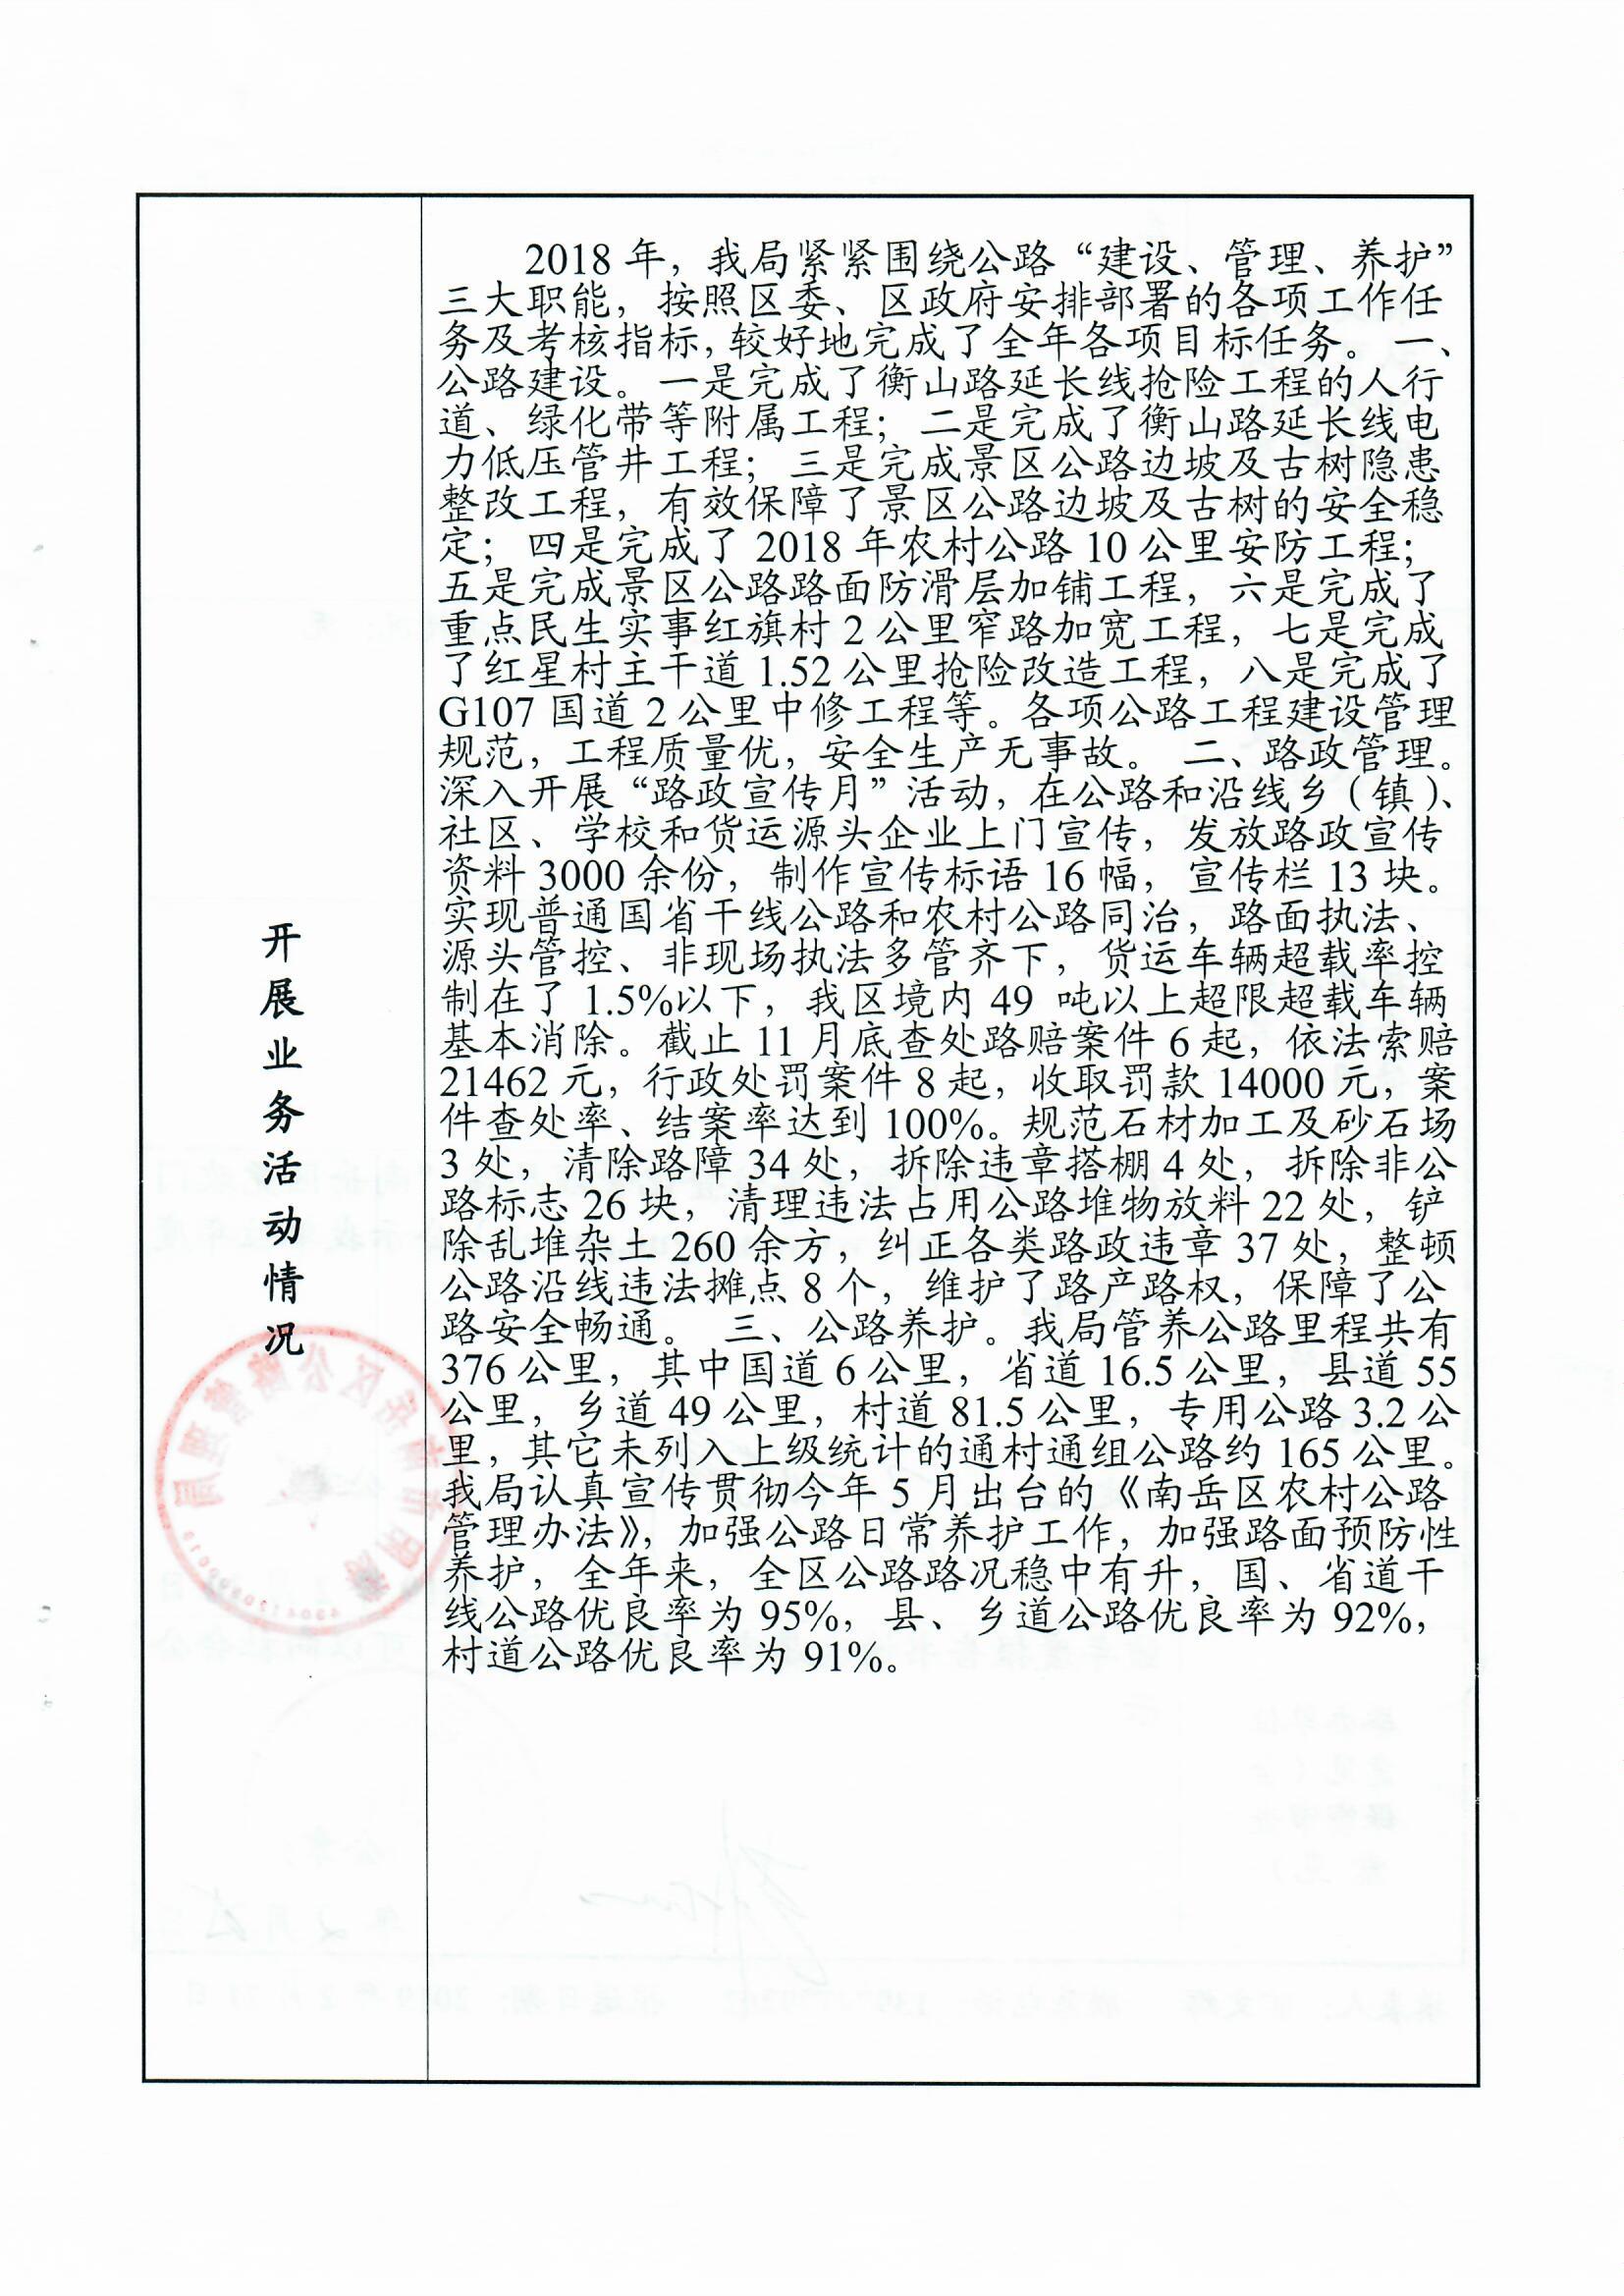 开展业务活动情况
2018 年，我局紧紧围绕公路“建设、管理、养护”
三大职能，按照区委、区政府安排部署的各项工作任
务及考核指标，较好地完成了全年各项目标任务。 一、
公路建设。一是完成了衡山路延长线抢险工程的人行
道、绿化带等附属工程；二是完成了衡山路延长线电
力低压管井工程；三是完成景区公路边坡及古树隐患
整改工程，有效保障了景区公路边坡及古树的安全稳
定；四是完成了 2018 年农村公路 10 公里安防工程；
五是完成景区公路路面防滑层加铺工程，六是完成了
重点民生实事红旗村 2 公里窄路加宽工程，七是完成
了红星村主干道 1.52 公里抢险改造工程，八是完成了
G107 国道 2 公里中修工程等。各项公路工程建设管理
规范，工程质量优，安全生产无事故。 二、路政管理。
深入开展“路政宣传月”活动，在公路和沿线乡（镇）、
社区、学校和货运源头企业上门宣传，发放路政宣传
资料 3000 余份，制作宣传标语 16 幅，宣传栏 13 块。
实现普通国省干线公路和农村公路同治，路面执法、
源头管控、非现场执法多管齐下，货运车辆超载率控
制在了 1.5%以下，我区境内 49 吨以上超限超载车辆
基本消除。截止 11 月底查处路赔案件 6 起，依法索赔
21462 元，行政处罚案件 8 起，收取罚款 14000 元，案
件查处率、结案率达到 100%。规范石材加工及砂石场
3 处，清除路障 34 处，拆除违章搭棚 4 处，拆除非公
路标志 26 块，清理违法占用公路堆物放料 22 处，铲
除乱堆杂土 260 余方，纠正各类路政违章 37 处，整顿
公路沿线违法摊点 8 个，维护了路产路权，保障了公
路安全畅通。 三、公路养护。我局管养公路里程共有
376 公里，其中国道 6 公里，省道 16.5 公里，县道 55
公里，乡道 49 公里，村道 81.5 公里，专用公路 3.2 公
里，其它未列入上级统计的通村通组公路约 165 公里。
我局认真宣传贯彻今年 5 月出台的《南岳区农村公路
管理办法》，加强公路日常养护工作，加强路面预防性
养护，全年来，全区公路路况稳中有升，国、省道干
线公路优良率为 95%，县、乡道公路优良率为 92%，
村道公路优良率为 91%。